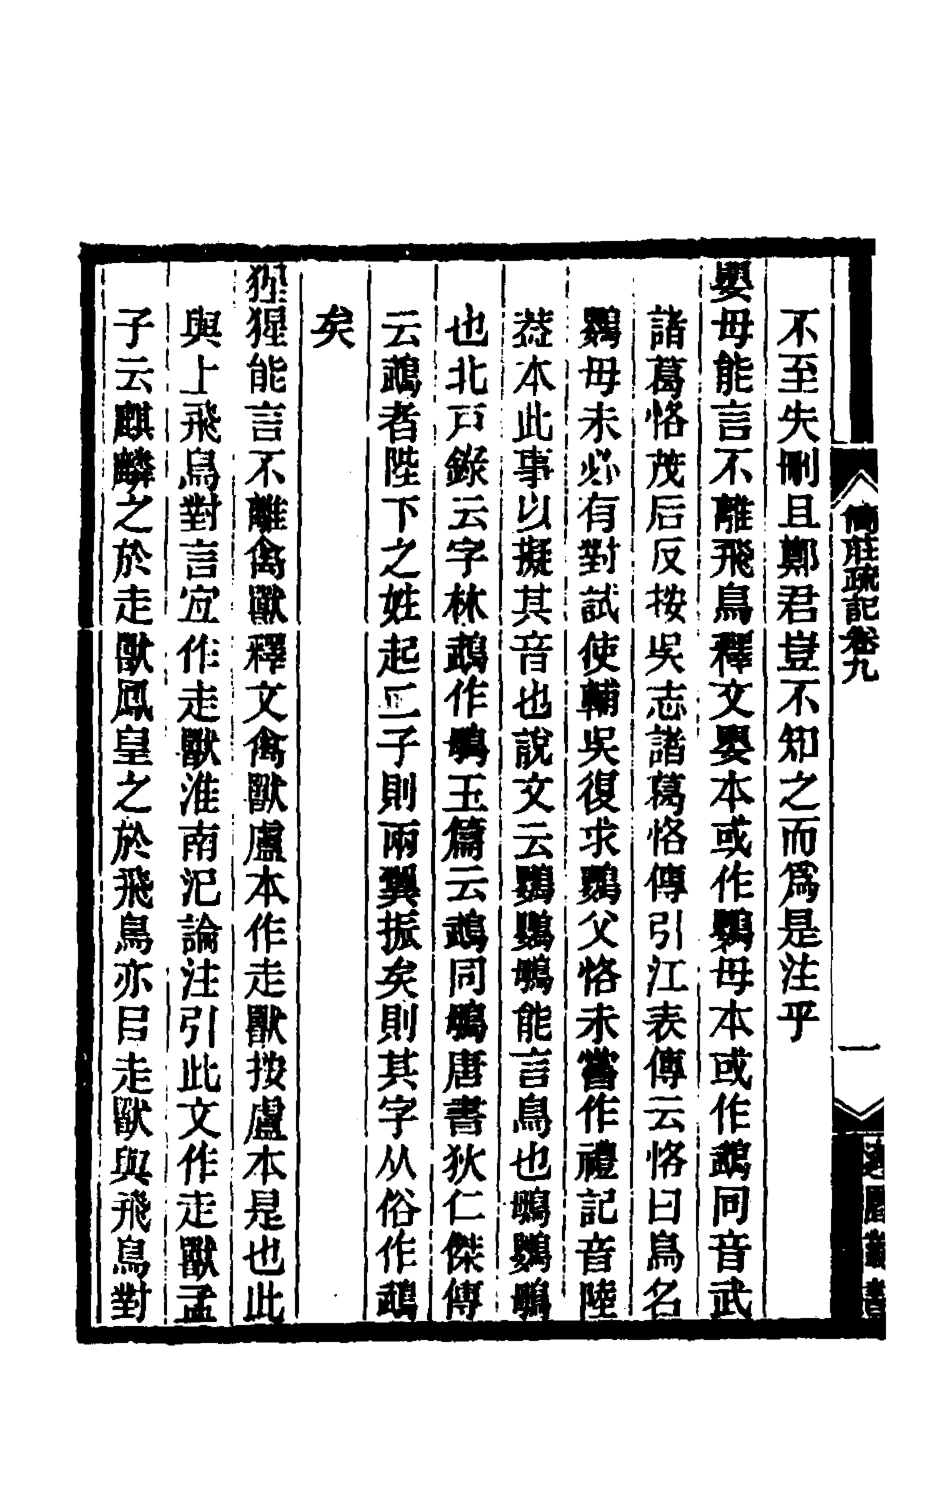 不至失刪且鄭君豈不知之而爲是注乎
嬰母能言不離飛鳥釋文嬰本或作鸚母本或作䳇同音武
諸葛恪茂后反按吳志諸葛恪傳引江表傳云恪曰鳥名
鸚母未必有對試使輔吳復求鸚父恪未嘗作禮記音陸
葢本此事以擬其音也說文云鸚鸚䳇能言鳥也䳇鸚䳇
也北戸錄云字林䳇作鴟玉篇云䳇同䳇唐書狄仁傑傳
云䳇者陛下之姓起二子則兩翼振矣則其字从俗作䳇
矣
猩猩能言不離禽獸釋文禽獸盧本作走獸按盧本是也此
與上飛鳥對言宜作走獸淮南氾論注引此文作走獸孟
子云麒麟之於走獸鳳皇之於飛鳥亦㠯走獸與飛鳥對
簡莊疏記卷九
一
適園叢書